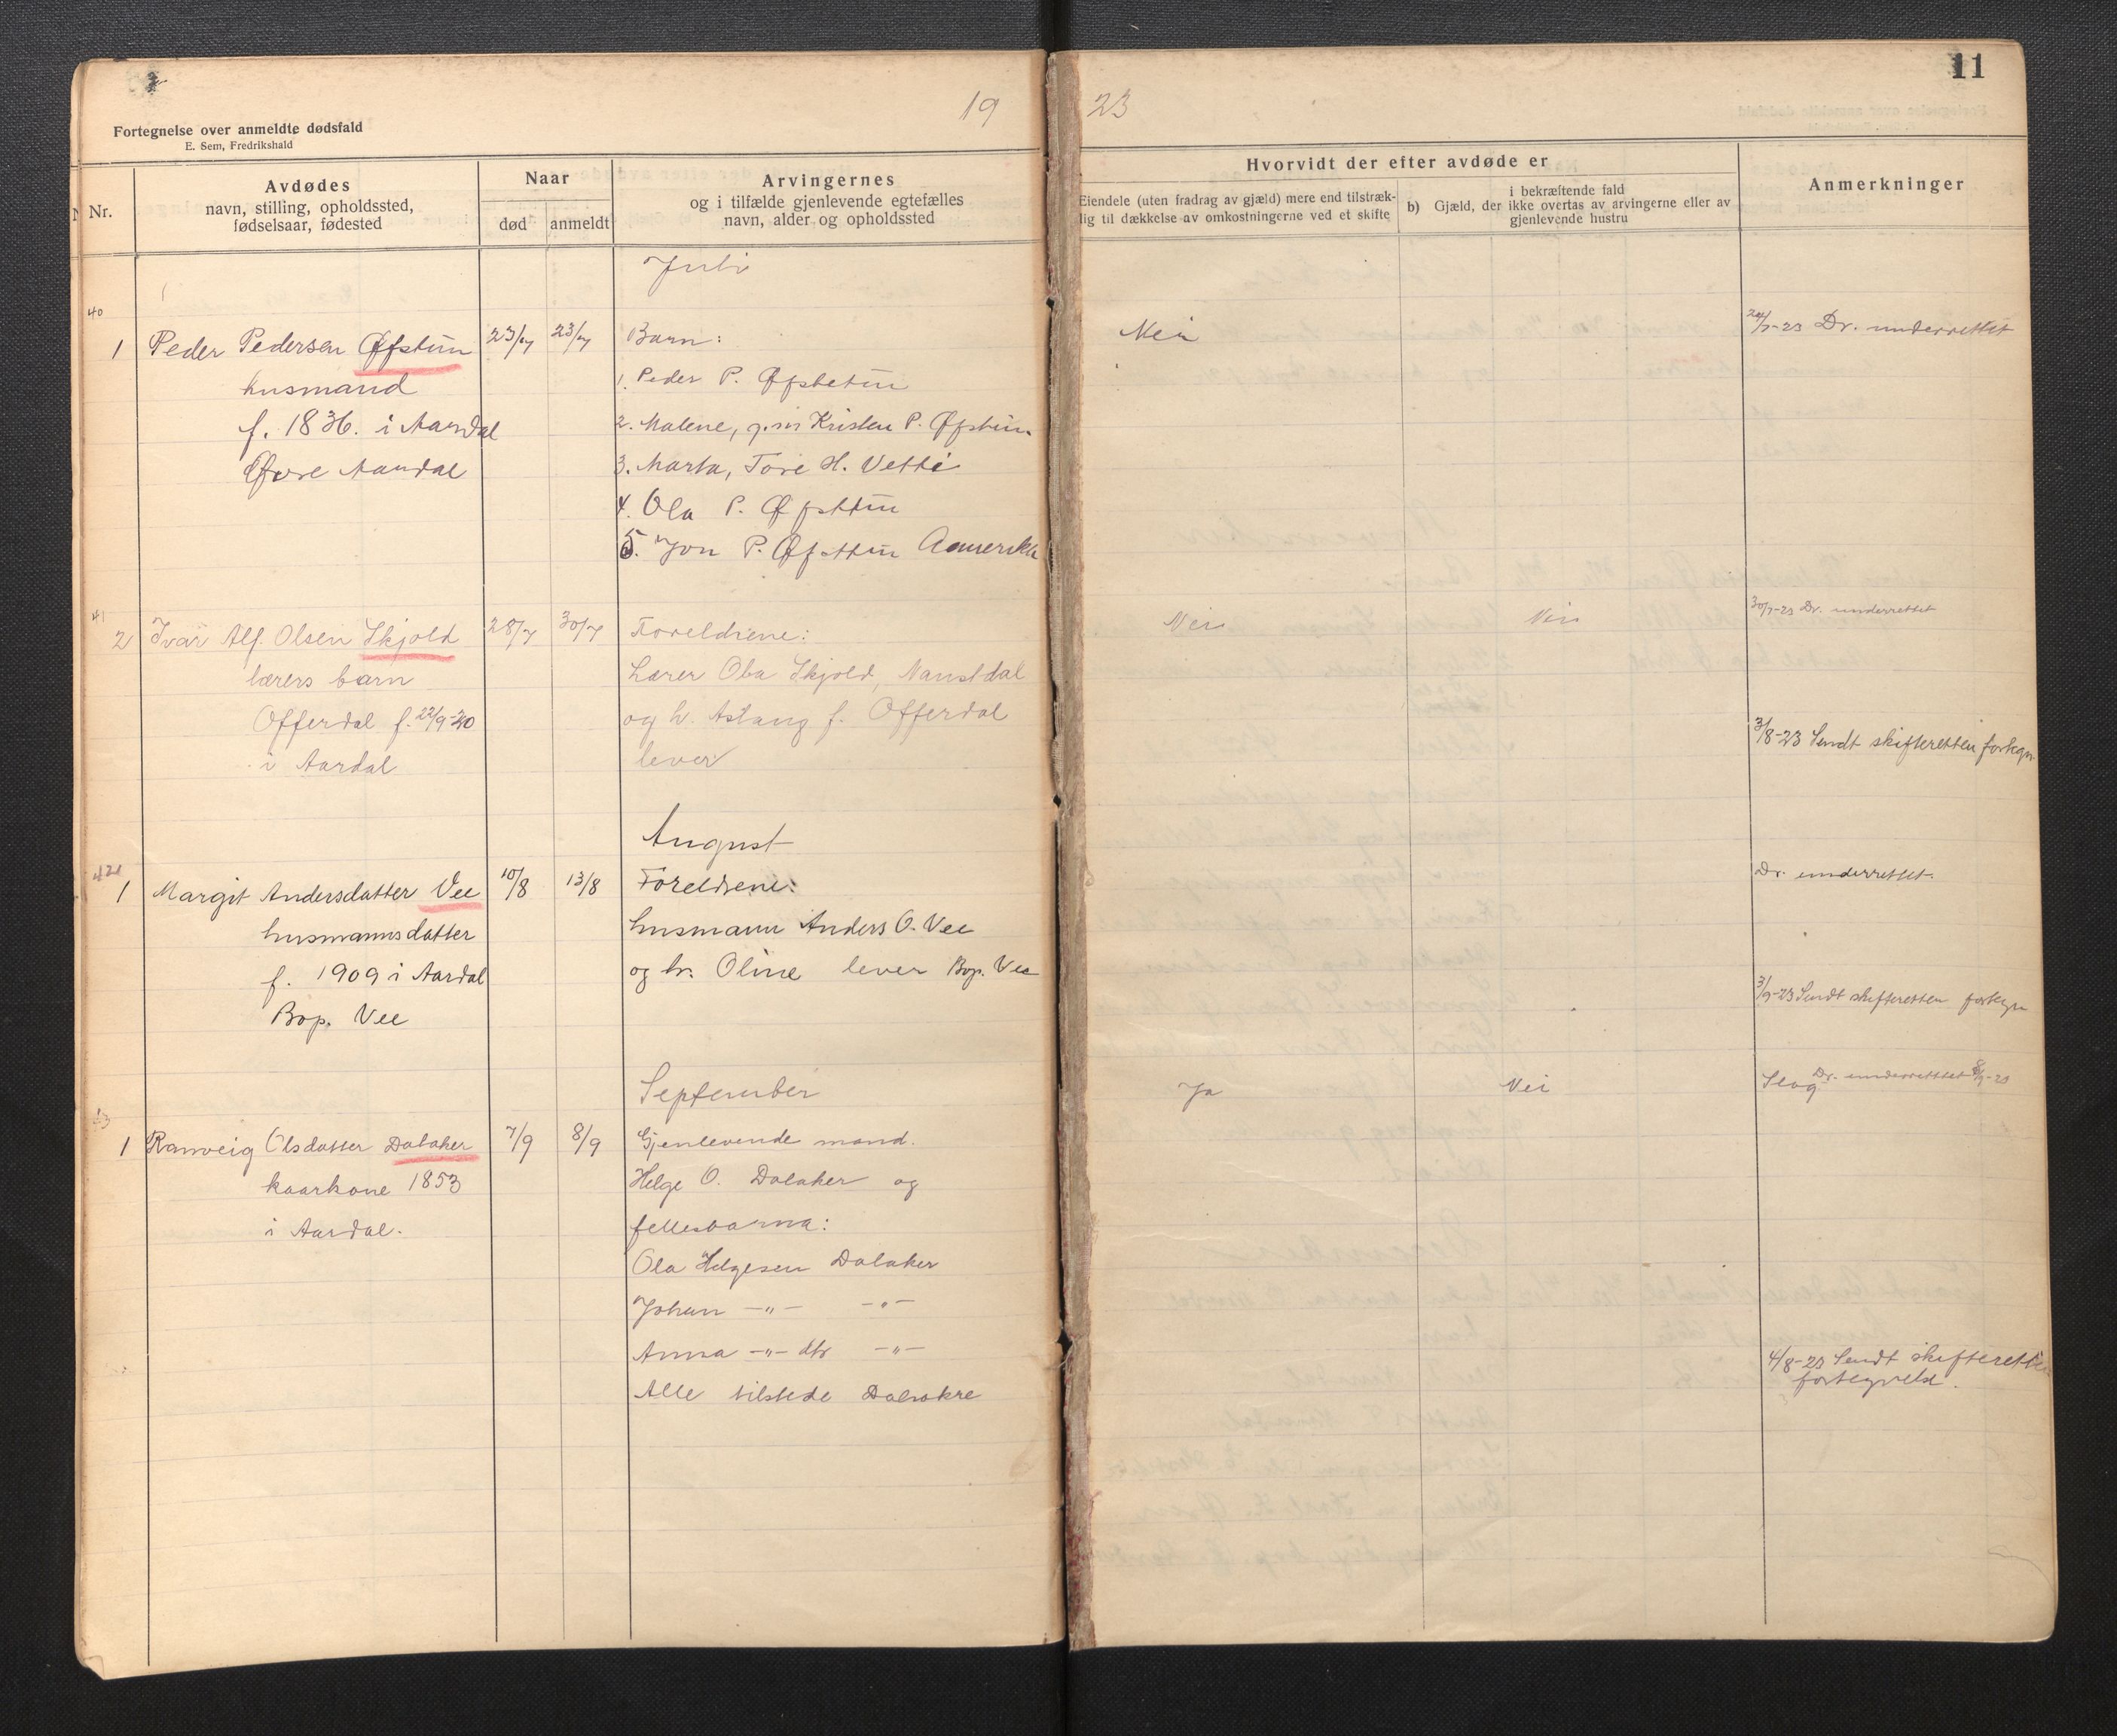 11
19
23
Fortegnelse over anmeldte dødsfald
E. Sem, Fredrikshald
Nr.
Avdødes
navn, stilling, opholdssted,
fødselsaar, fødested
Naar
død
anmeldt
Arvingernes
og i tilfælde gjenlevende egtefælles
navn, alder og opholdssted
Hvorvidt der efter avdøde er
Eiendele (uten fradrag av gjæld) mere end tilstræk-
lig til dækkelse av omkostningerne ved et skifte
b) Gjæld, der
i bekræftende fald
ikke overtas av arvingerne eller av
gjenlevende hustru
Anmerkninger
Juli
40
1 Peder Pedersen Øfstun
husmand
f. 1836. i Aardal
Øvre Aardal
23/7
23/7
Barn:
1. Peder P. Øfstetun
2. Malene, g.m Kristen P. Øfstun.
3. Marta, Tore H. Vetti
4. Ola P. Øfsttun
5. Jon P. Øfsttun Aamerika
Nei
24/7-23 Dr. underrettet
41
2 Ivar Alf. Olsen Skjold
lærers barn
Offerdal f. 22/9-20
i Aardal
28/7
30/7
Foreldrene:
Lærer Ola Skjold, Naustdal
og h. Aslaug f. Offerdal
lever
Nei
Nei
30/7-23 Dr. underrettet
3/8-23 Sendt skifteretten fortegn.
August
42
1 Margit Andersdatter Vee
husmannsdatter
f. 1909 i Aardal
Bop. Vee
10/8
13/8
Foreldrene:
husmann Anders O. Vee
og h. Oline lever Bop. Vee
Dr. underrettet.
3/9-23 Sendt skifteretten fortegn
September
43
1 Ranveig Olsdatter Dalaker
kaarkone 1853
i Aardal.
7/9
8/9
Gjenlevende mand.
Helge O. Dalaker og
fellesbarna:
Ola Helgesen Dalaker
Johan –"– –"–
Anna –"– dtr –"–
Alle tilstede Dalaker
Ja
Nei
Slag Dr. underrettet 8/9-23
4/8-23 Sendt skifteretten
fortegnelse.